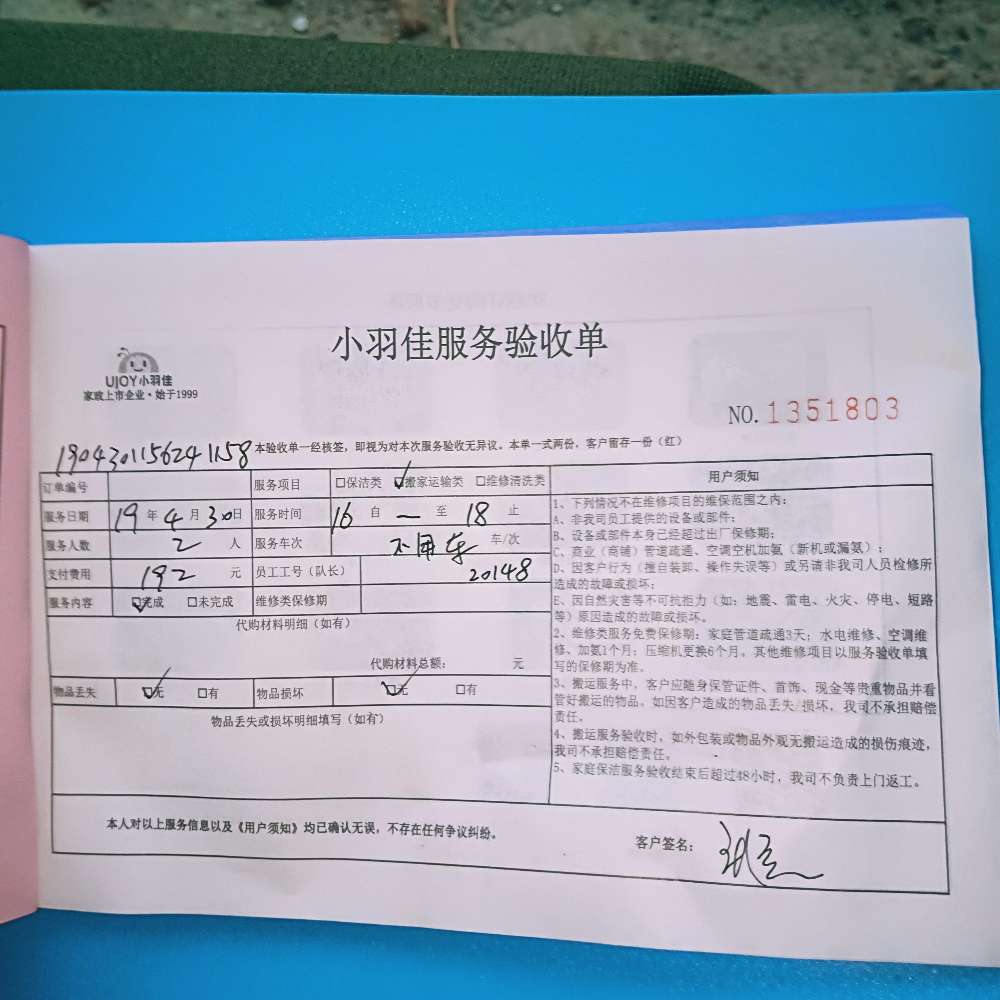 小羽佳服务验收单
UJOY小羽佳
家政上市企业·始于1999
NO.1351803
1904301156241158 本验收单一经核签，即视为对本次服务验收无异议。本单一式两份，客户留存一份（红）
订单编号 服务项目 □保洁类 □搬家运输类 □维修清洗类
服务日期 19 年 4 月 30 日 服务时间 16 自 一 至 18 止
服务人数 2 人 服务车次 不用车 车/次
支付费用 192 元 员工工号（队长） 20148
服务内容 □完成 □未完成 维修类保修期
代购材料明细（如有）
代购材料总额： 元
物品丢失 □无 □有 物品损坏 □无 □有
物品丢失或损坏明细填写（如有）
用户须知
1、下列情况不在维修项目的维保范围之内：
A、非我司员工提供的设备或部件；
B、设备或部件本身已经超过出厂保修期；
C、商业（商铺）管道疏通、空调空机加氨（新机或漏氨）；
D、因客户行为（擅自装卸、操作失误等）或另请非我司人员检修所
造成的故障或损坏；
E、因自然灾害等不可抗拒力（如：地震、雷电、火灾、停电、短路
等）原因造成的故障或损坏。
2、维修类服务免费保修期：家庭管道疏通3天；水电维修、空调维
修、加氨1个月；压缩机更换6个月。其他维修项目以服务验收单填
写的保修期为准。
3、搬运服务中，客户应随身保管证件、首饰、现金等贵重物品并看
管好搬运的物品。如因客户造成的物品丢失/损坏，我司不承担赔偿
责任。
4、搬运服务验收时，如外包装或物品外观无搬运造成的损伤痕迹，
我司不承担赔偿责任。
5、家庭保洁服务验收结束后超过48小时，我司不负责上门返工。
本人对以上服务信息以及《用户须知》均已确认无误，不存在任何争议纠纷。
客户签名：